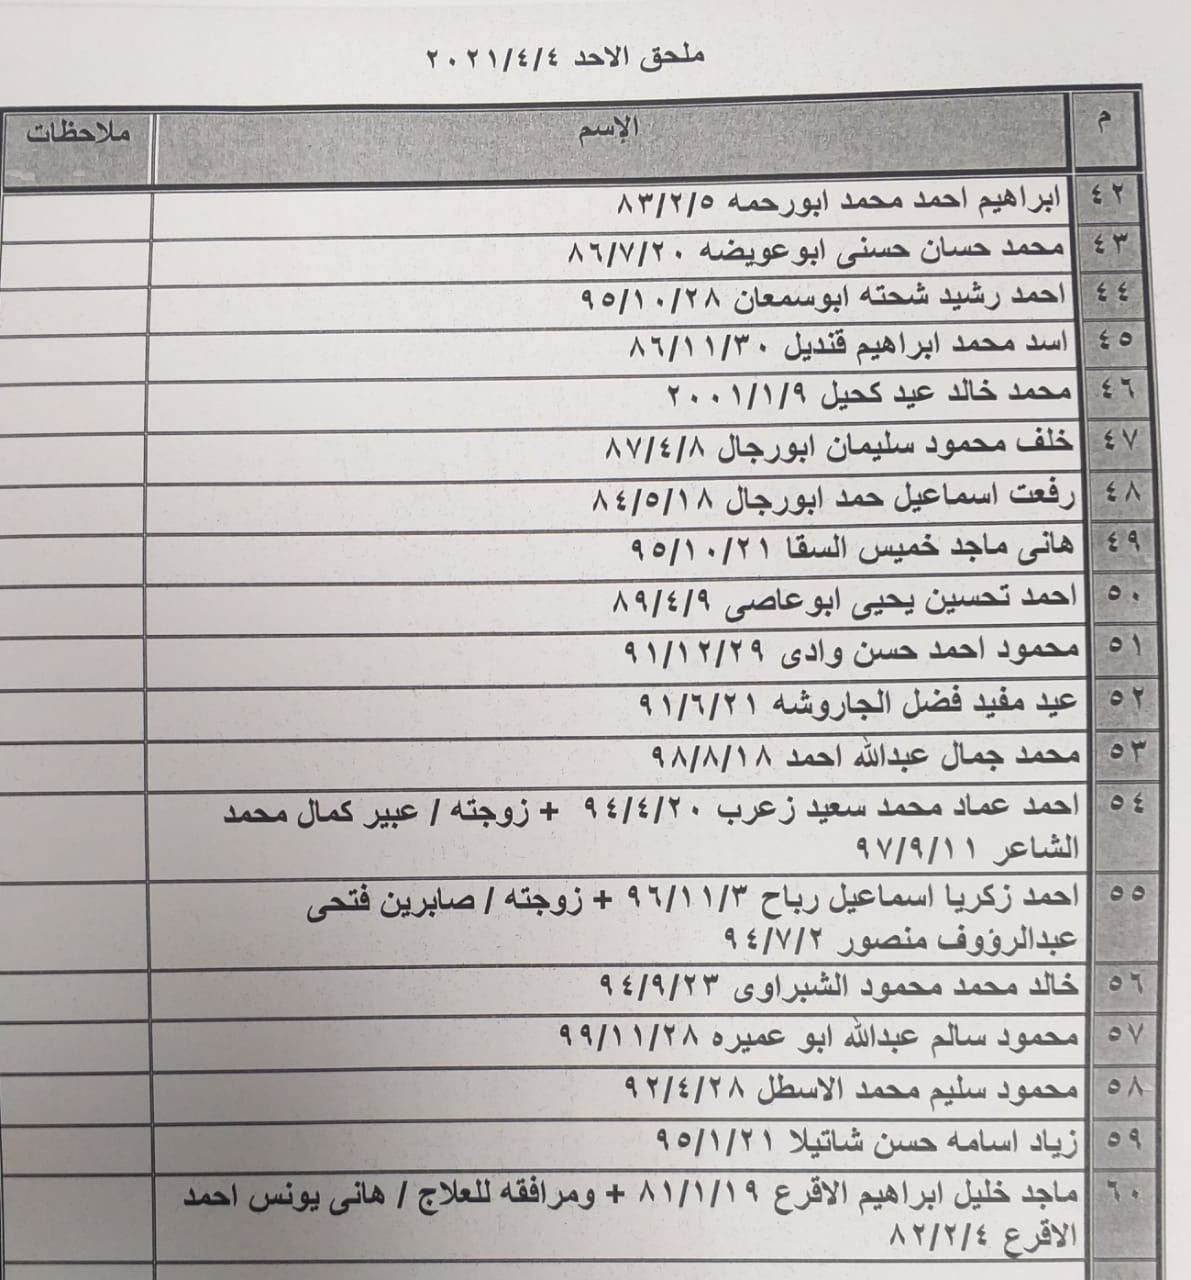 ملحق الاحد ٢٠٢١/٤/٤
م الإسم ملاحظات
٤٢ ابراهيم احمد محمد ابورحمه ٨٣/٢/٥
٤٣ محمد حسان حسنى ابوعويضه ٨٦/٧/٢٠
٤٤ احمد رشيد شحته ابوسمعان ٩٥/١٠/٢٨
٤٥ اسد محمد ابراهيم قنديل ٨٦/١١/٣٠
٤٦ محمد خالد عيد كحيل ٢٠٠١/١/٩
٤٧ خلف محمود سليمان ابورجال ٨٧/٤/٨
٤٨ رفعت اسماعيل حمد ابورجال ٨٤/٥/١٨
٤٩ هانى ماجد خميس السقا ٩٥/١٠/٢١
٥٠ احمد تحسين يحيى ابوعاصى ٨٩/٤/٩
٥١ محمود احمد حسن وادى ٩١/١٢/٢٩
٥٢ عيد مفيد فضل الجاروشه ٩١/٦/٢١
٥٣ محمد جمال عبدالله احمد ٩٨/٨/١٨
٥٤ احمد عماد محمد سعيد زعرب ٩٤/٤/٢٠ + زوجته / عبير كمال محمد
الشاعر ٩٧/٩/١١
٥٥ احمد زكريا اسماعيل رباح ٩٦/١١/٣ + زوجته / صابرين فتحى
عبدالرؤوف منصور ٩٤/٧/٢
٥٦ خالد محمد محمود الشبراوى ٩٤/٩/٢٣
٥٧ محمود سالم عبدالله ابو عميره ٩٩/١١/٢٨
٥٨ محمود سليم محمد الاسطل ٩٢/٤/٢٨
٥٩ زياد اسامه حسن شاتيلا ٩٥/١/٢١
٦٠ ماجد خليل ابراهيم الاقرع ٨١/١/١٩ + ومرافقه للعلاج / هانى يونس احمد
الاقرع ٨٢/٢/٤